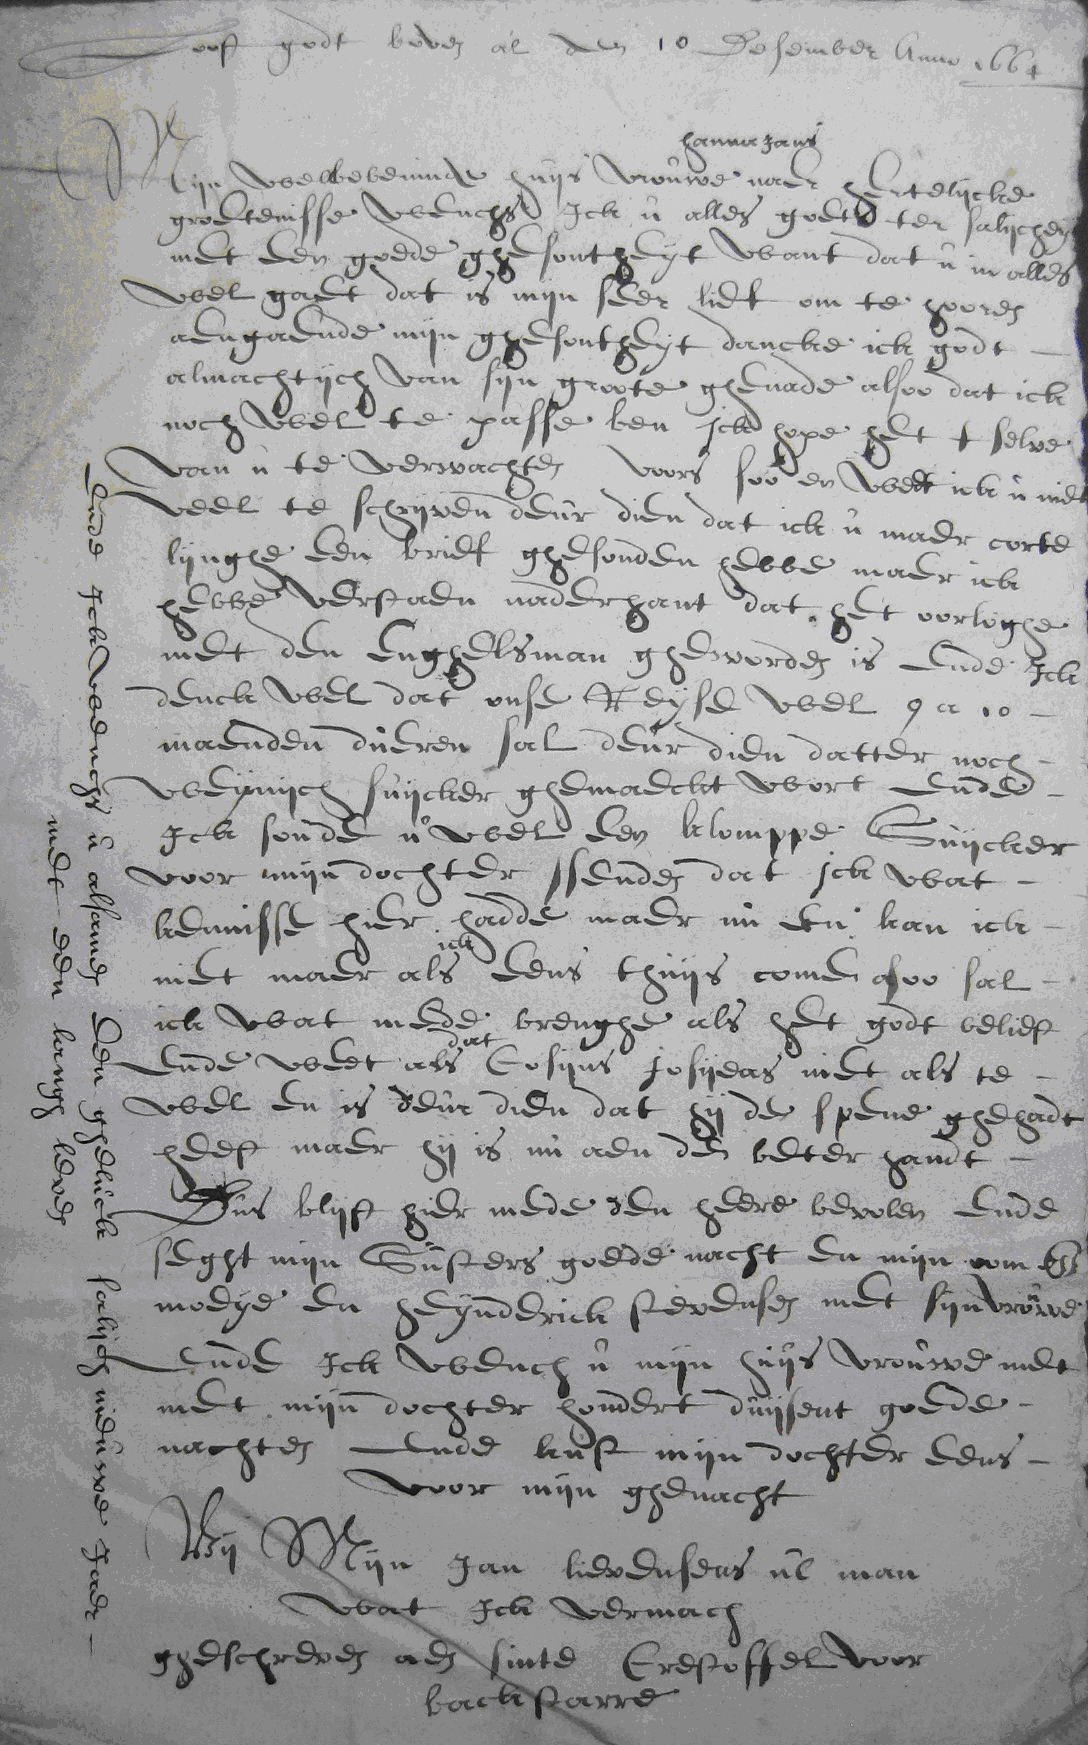 Looft godt boven al den 10 Desember Anno 1664
hanna Jans
Mijn wel bebeminde huijs vrouwe naer hertelijcke
groetenisse wensche Ick u alles goets ter salijcheyt
met een goede ghesontheyt want dat u in alles
wel gaet dat is mijn seer lief om te hooren
aengaende mijn ghesontheyt dancke ick godt
almachtijch van sijn groote ghenade alsoo dat ick
noch wel te passe ben Ick hope het t selve
van u te verwachten voors soo en weet ick u niet
veel te schrijven deur dien dat ick u maer corte
lijnghe een brief ghesonden hebbe maer ick
hebbe verstaen naderhant dat het oorloghe
met den Enghelsman gheworden is Ende Ick
denck wel dat onse Reyse wel 9 a 10
maenden dueren sal deur dien datter noch
weijnijch suijcker ghemaeckt wort Ende
Ick soude u wel een klomppe Suijcker
voor mijn dochter ssenden dat Ick wat
kennisse hier hadde maer nu en kan ick
niet maer als ick eens thuijs come alsoo sal
ick wat mede brenghe als het godt belieft
Ende weet als dat Cosijns Josijeas niet als te
wel en is deur dien dat hij de spene ghehadt
heeft maer hij is nu aen de beter handt
Dus blijft hier mede den heere bevolen Ende
seght mijn Susters goede nacht en mijn oom en
moeye en heijnderick stevensen met sijn vrouwe
Ende Ick wensch u mijn huijs vrouwe met
met mijn dochter hondert duijsent goede
nachten Ende kust mijn dochter eens
voor mijn ghenacht
Bij Mijn Jan lievensens ul man
wat Ick vermach
gheschreven aen sinte Crestoffel voor
backstarre
Ende Ick wensche u alsamen een gheluck salijch nieuwe Jaer
met een lanck leven